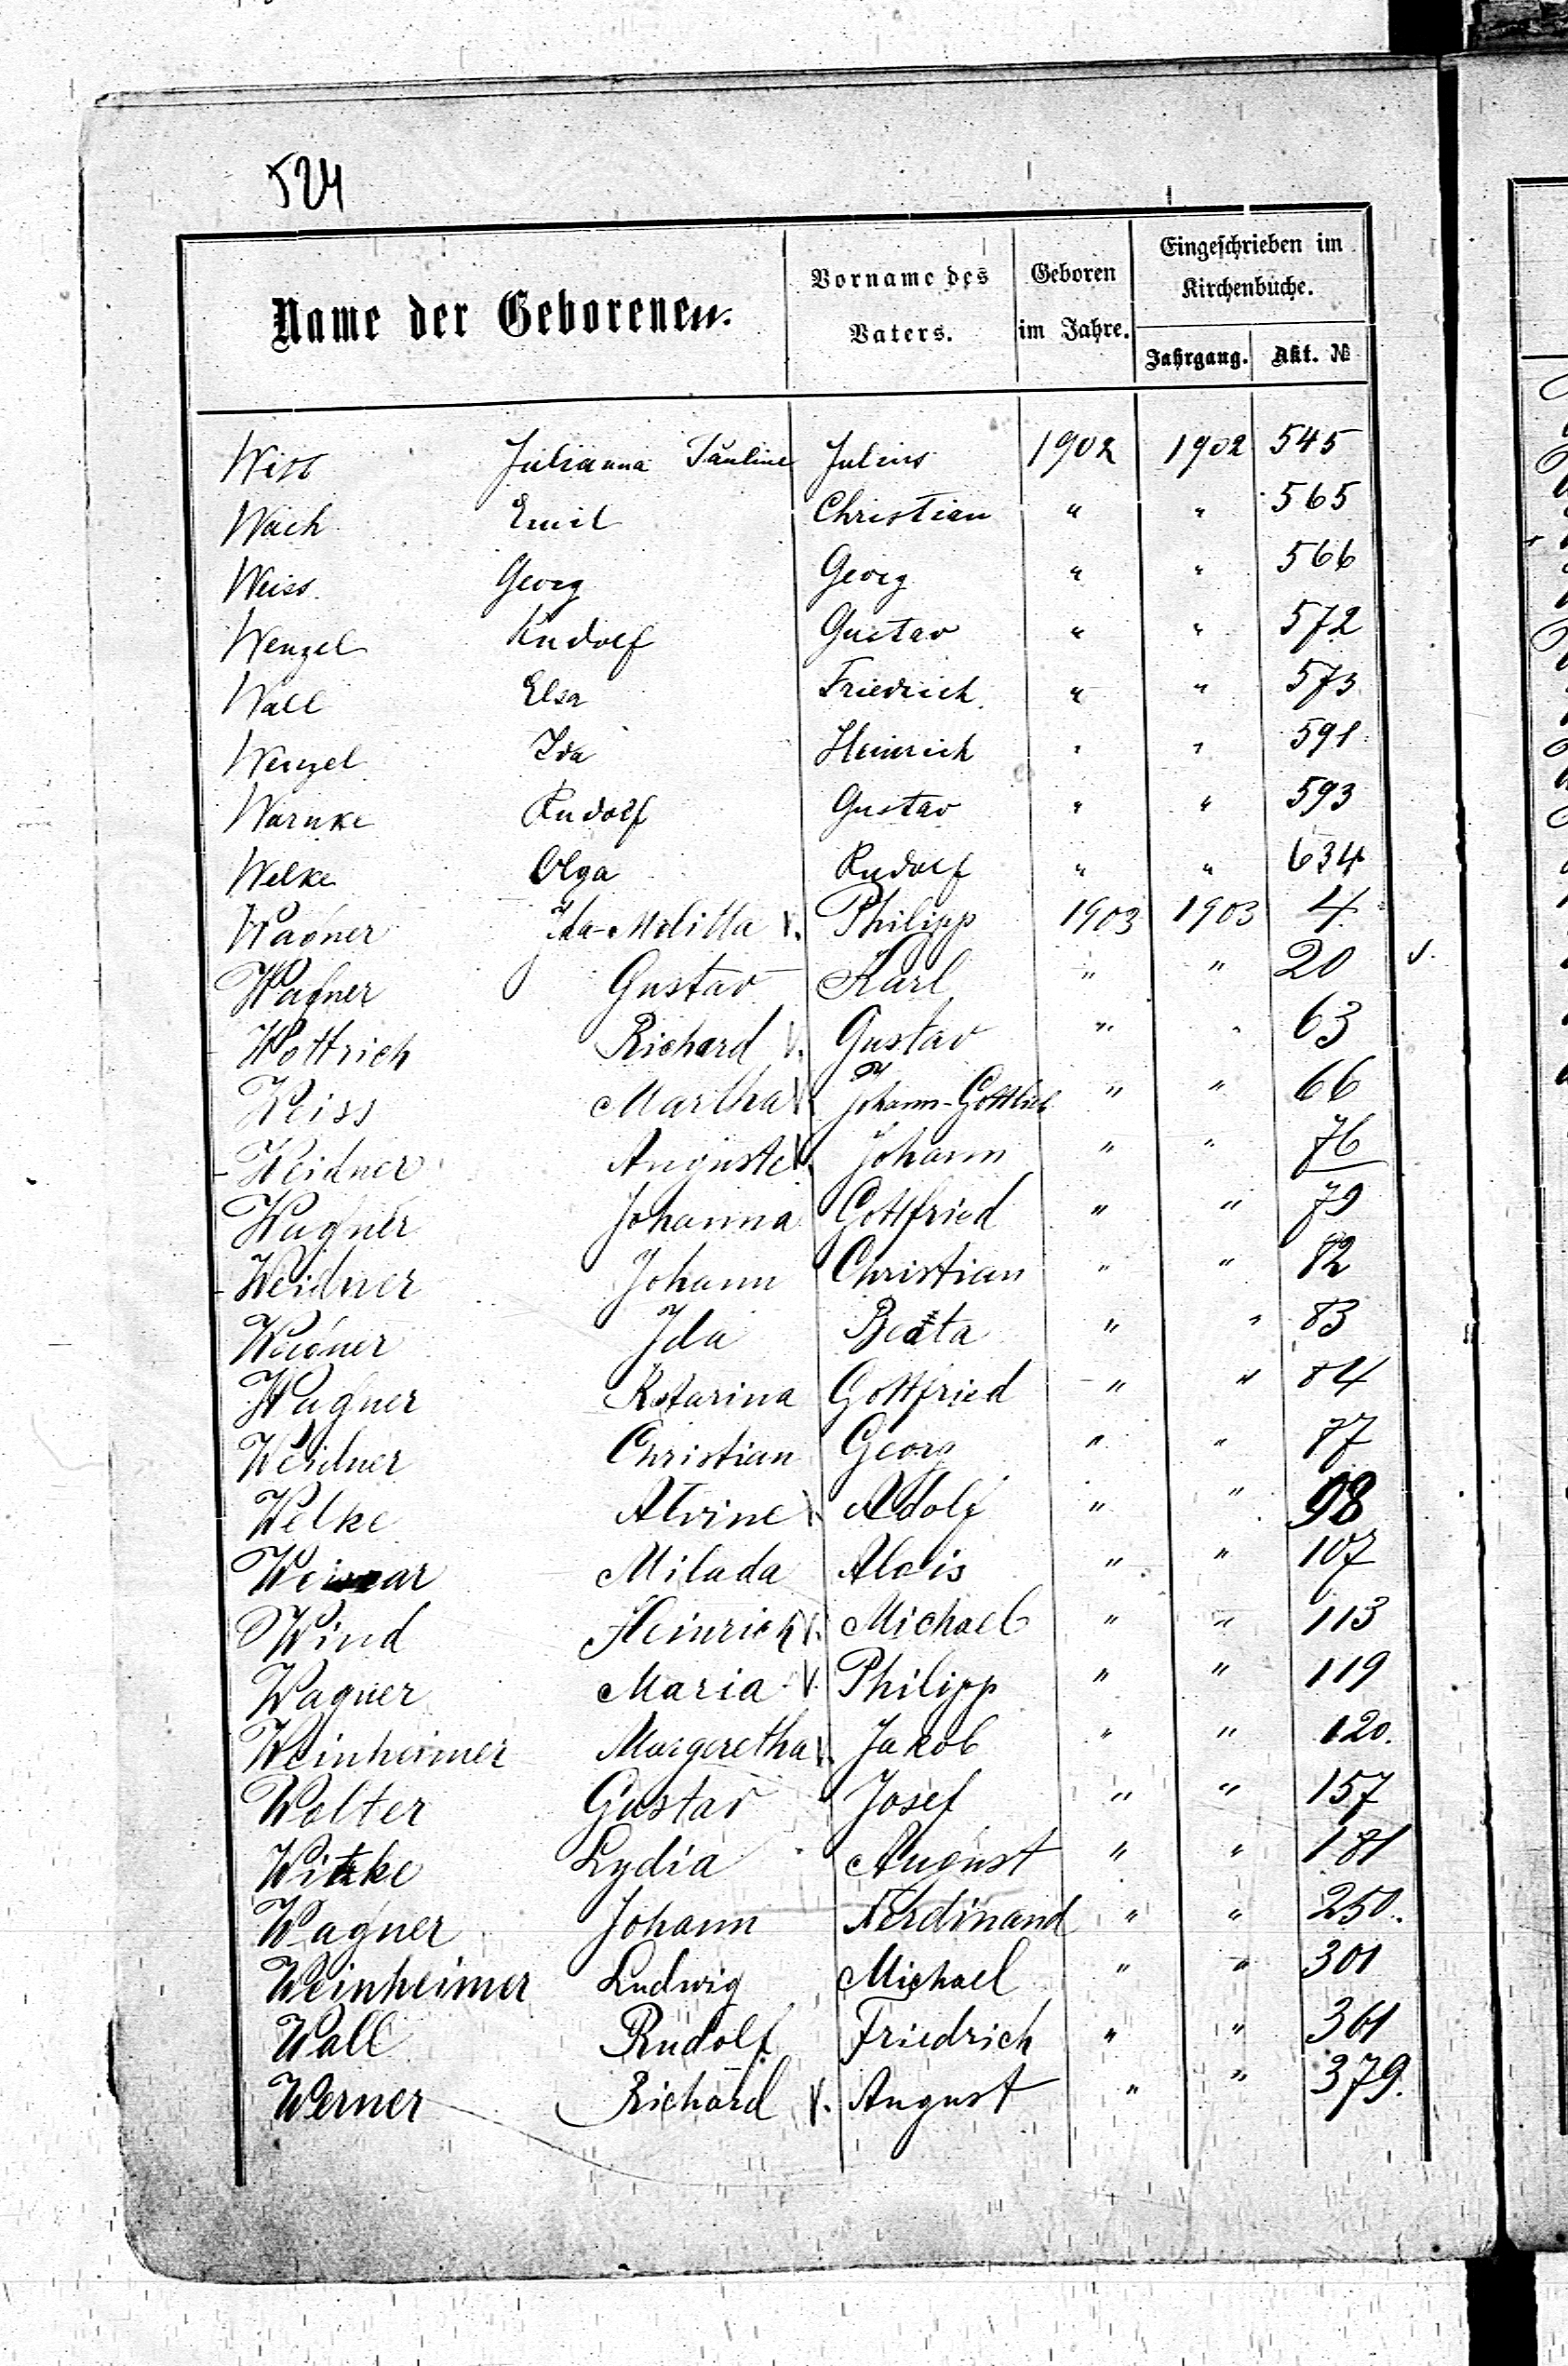 524
Name der Geborenen. Vorname des Vaters. Geboren im Jahre. Eingeschrieben im Kirchenbuche. Jahrgang. Akt. №
Witt Julianna Pauline Julius 1902 1902 545
Wach Emil Christian " " 565
Weiss Georg Georg " " 566
Wenzel Rudolf Gustav " " 572
Wall Elsa Friedrich " " 573
Wenzel Ida Heinrich " " 591
Warnke Rudolf Gustav " " 593
Welke Olga Rudolf " " 634
Wagner Ida-Melitta V. Philipp 1903 1903 4.
Wagner Gustav Karl " " 20 V.
Wottrich Richard V. Gustav " " 63
Weiss Martha V. Johann-Gottlieb " " 66
Weidner Auguste V. Johann " " 76
Wagner Johanna Gottfried " " 79
Weidner Johann Christian " " 82
Ida Beata " " 83
Wagner Katarina Gottfried " " 84
Weidner Christian Georg " " 87
Welke Alvine V. Adolf " " 98
Milada Alois " " 107
Wind Heinrich V. Michael " " 113
Wagner Maria V. Philipp " " 119
Weinheimer Margeretha V. Jakob " " 120.
Wolter Gustav Josef " " 157
Witzke Lydia August " " 181
Wagner Johann Ferdinand " " 250.
Weinheimer Ludwig Michael " " 301
Wall Rudolf Friedrich " " 361
Werner Richard V. August " " 379.